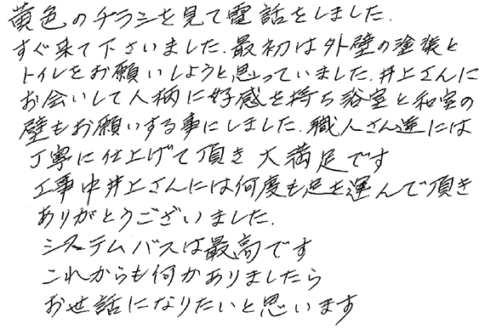 黄色のチラシを見て電話をしました.
すぐ来て下さいました.最初は外壁の塗装と
トイレをお願いしようと思っていました.井上さんに
お会いして人柄に好感を持ち浴室と和室の
壁もお願いする事にしました.職人さん達には
丁寧に仕上げて頂き大満足です
工事中井上さんには何度も足を運んで頂き
ありがとうございました.
システムバスは最高です
これからも何かありましたら
お世話になりたいと思います